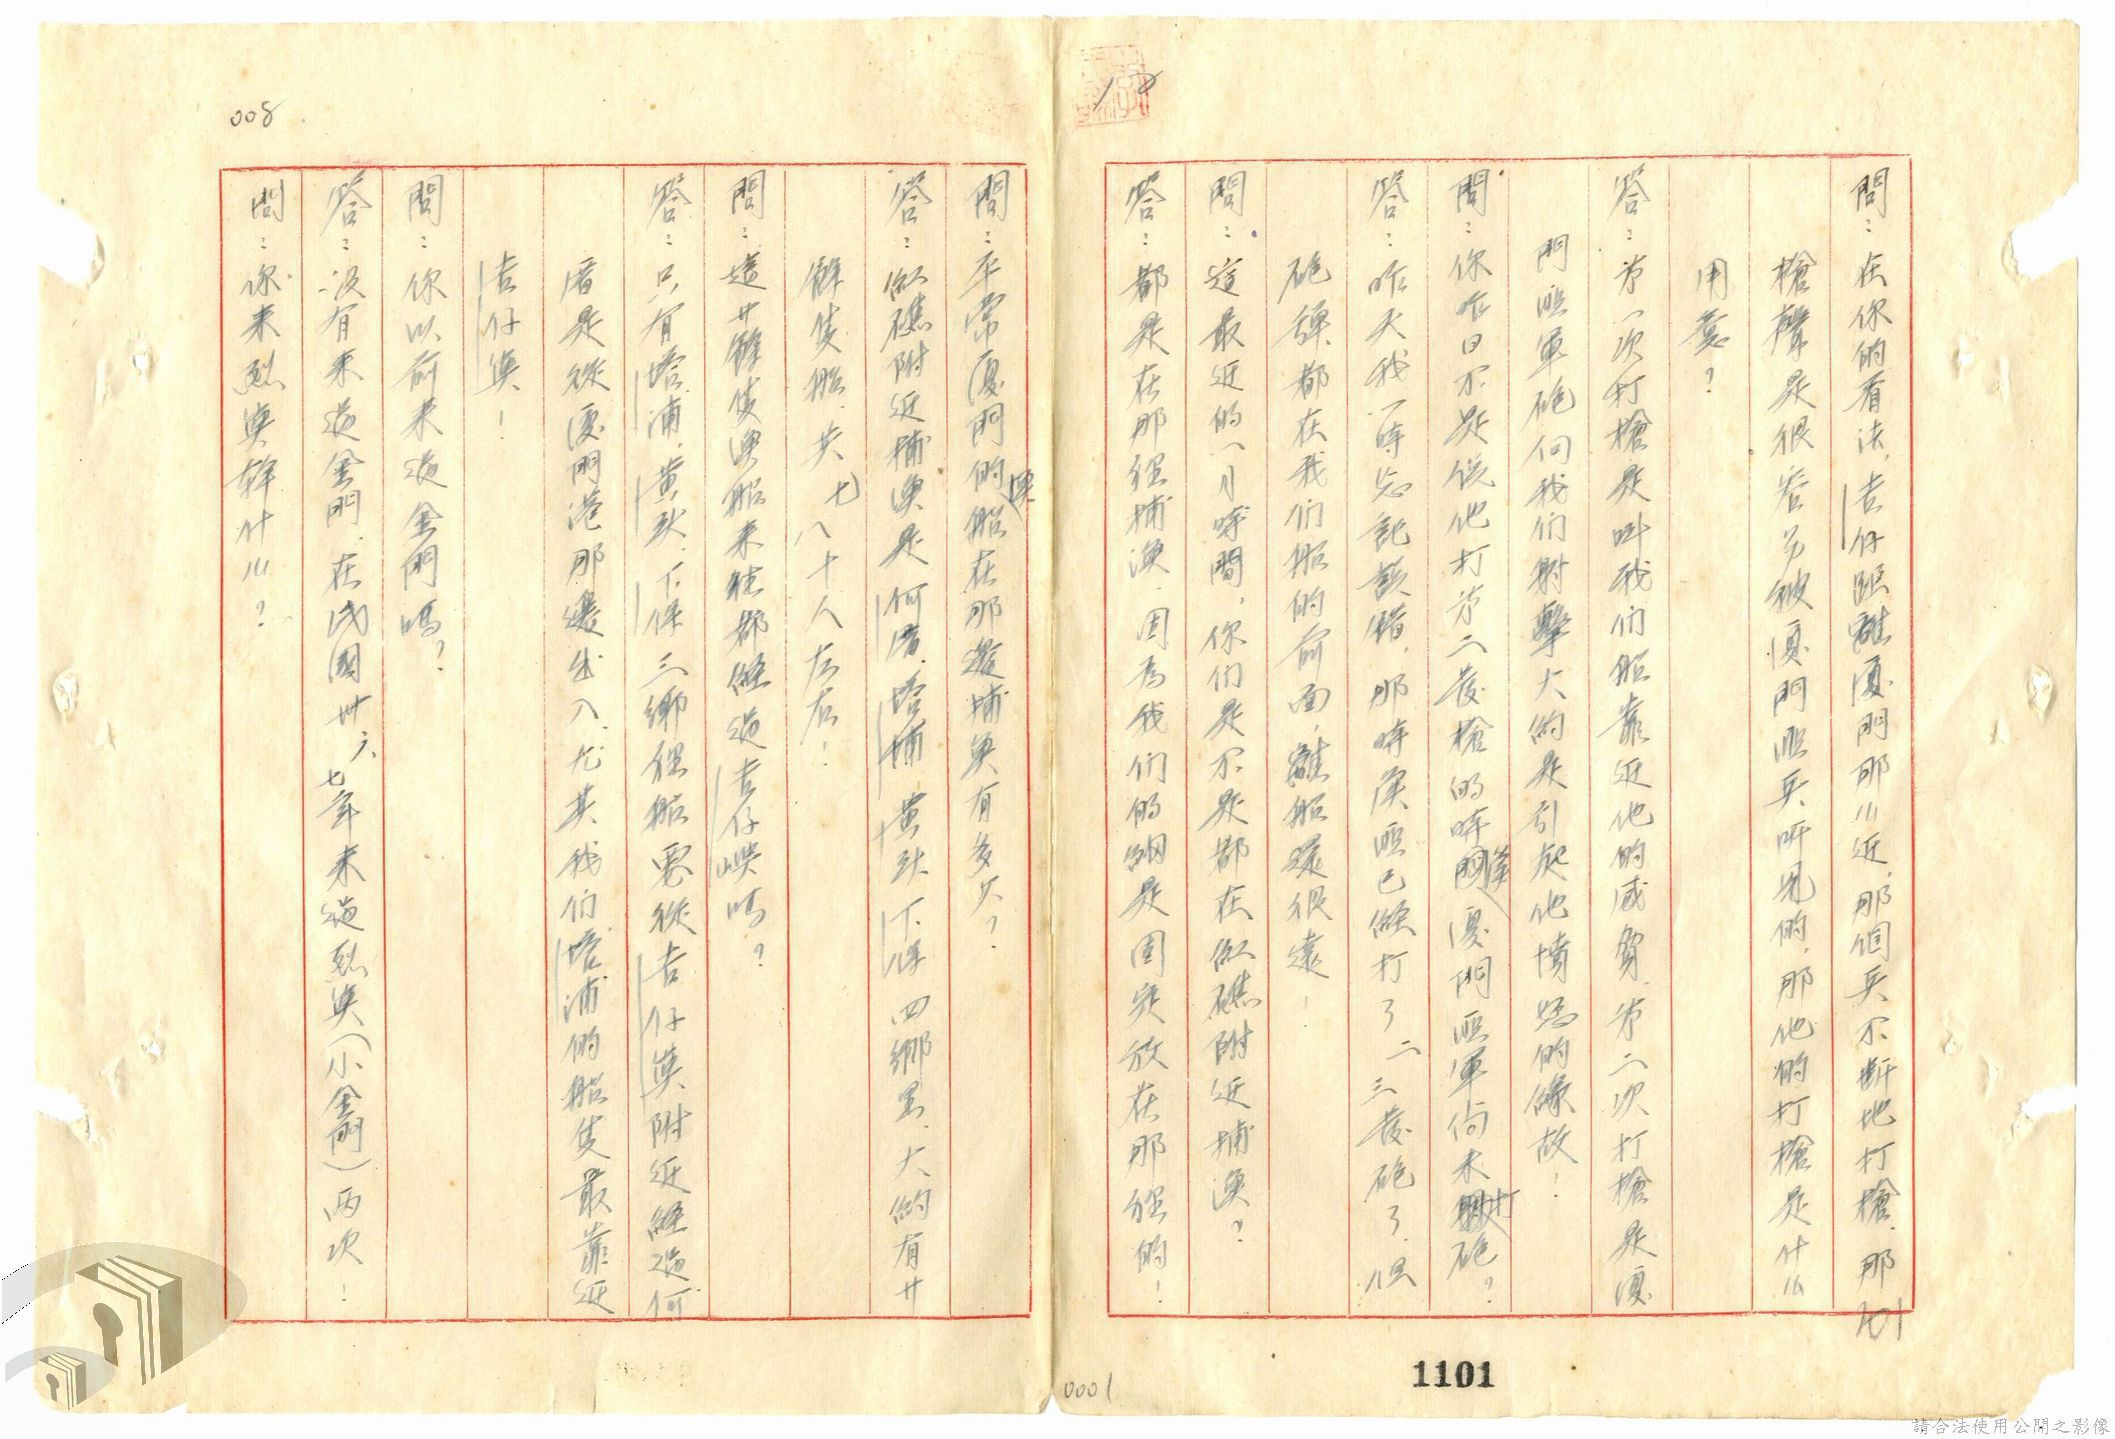 問：在你的看法，吉仔距離廈門那么近，那個兵不斷地打槍，那
槍聲是很容易被廈門匪兵听見的，那他的打槍是什么
用意？
答：第一次打槍是叫我们船靠近他的感覚，第二次打槍是廈
門匪軍砲向我们射擊大約是引起他憤怒的緣故！
問：你昨日不是说他打第二發槍的時候，廈門匪軍尚未打砲？
答：昨天我一時忘記說錯，那時候匪已經打了二三發砲了，但
砲彈都在我们船的前面，離船還很遠！
問：這最近的一月時間，你们是不是都在紅礁附近捕漁？
答：都是在那裡捕漁，因為我们的網是固定放在那裡的！
問：平常廈門的漁船在那邊捕魚有多少？
答：紅礁附近捕漁是何厝、塔埔、黃頭、下保四鄉里，大約有廿
餘隻船，共七八十人左右！
問：這廿餘隻漁船来往都經過吉仔嶼嗎？
答：只有塔浦、黃頭、下保三鄉裡船要從吉仔奐附近經過，何
厝是從廈門港那邊出入，尤其我们塔浦的船隻最靠近
吉仔奐！
問：你以前来過金門嗎？
答：没有来過金門，在民國卅六、七年来過烈奐（小金門）兩次！
問：你来烈奐幹什么？
008
0001
1101
請合法使用公開之影像